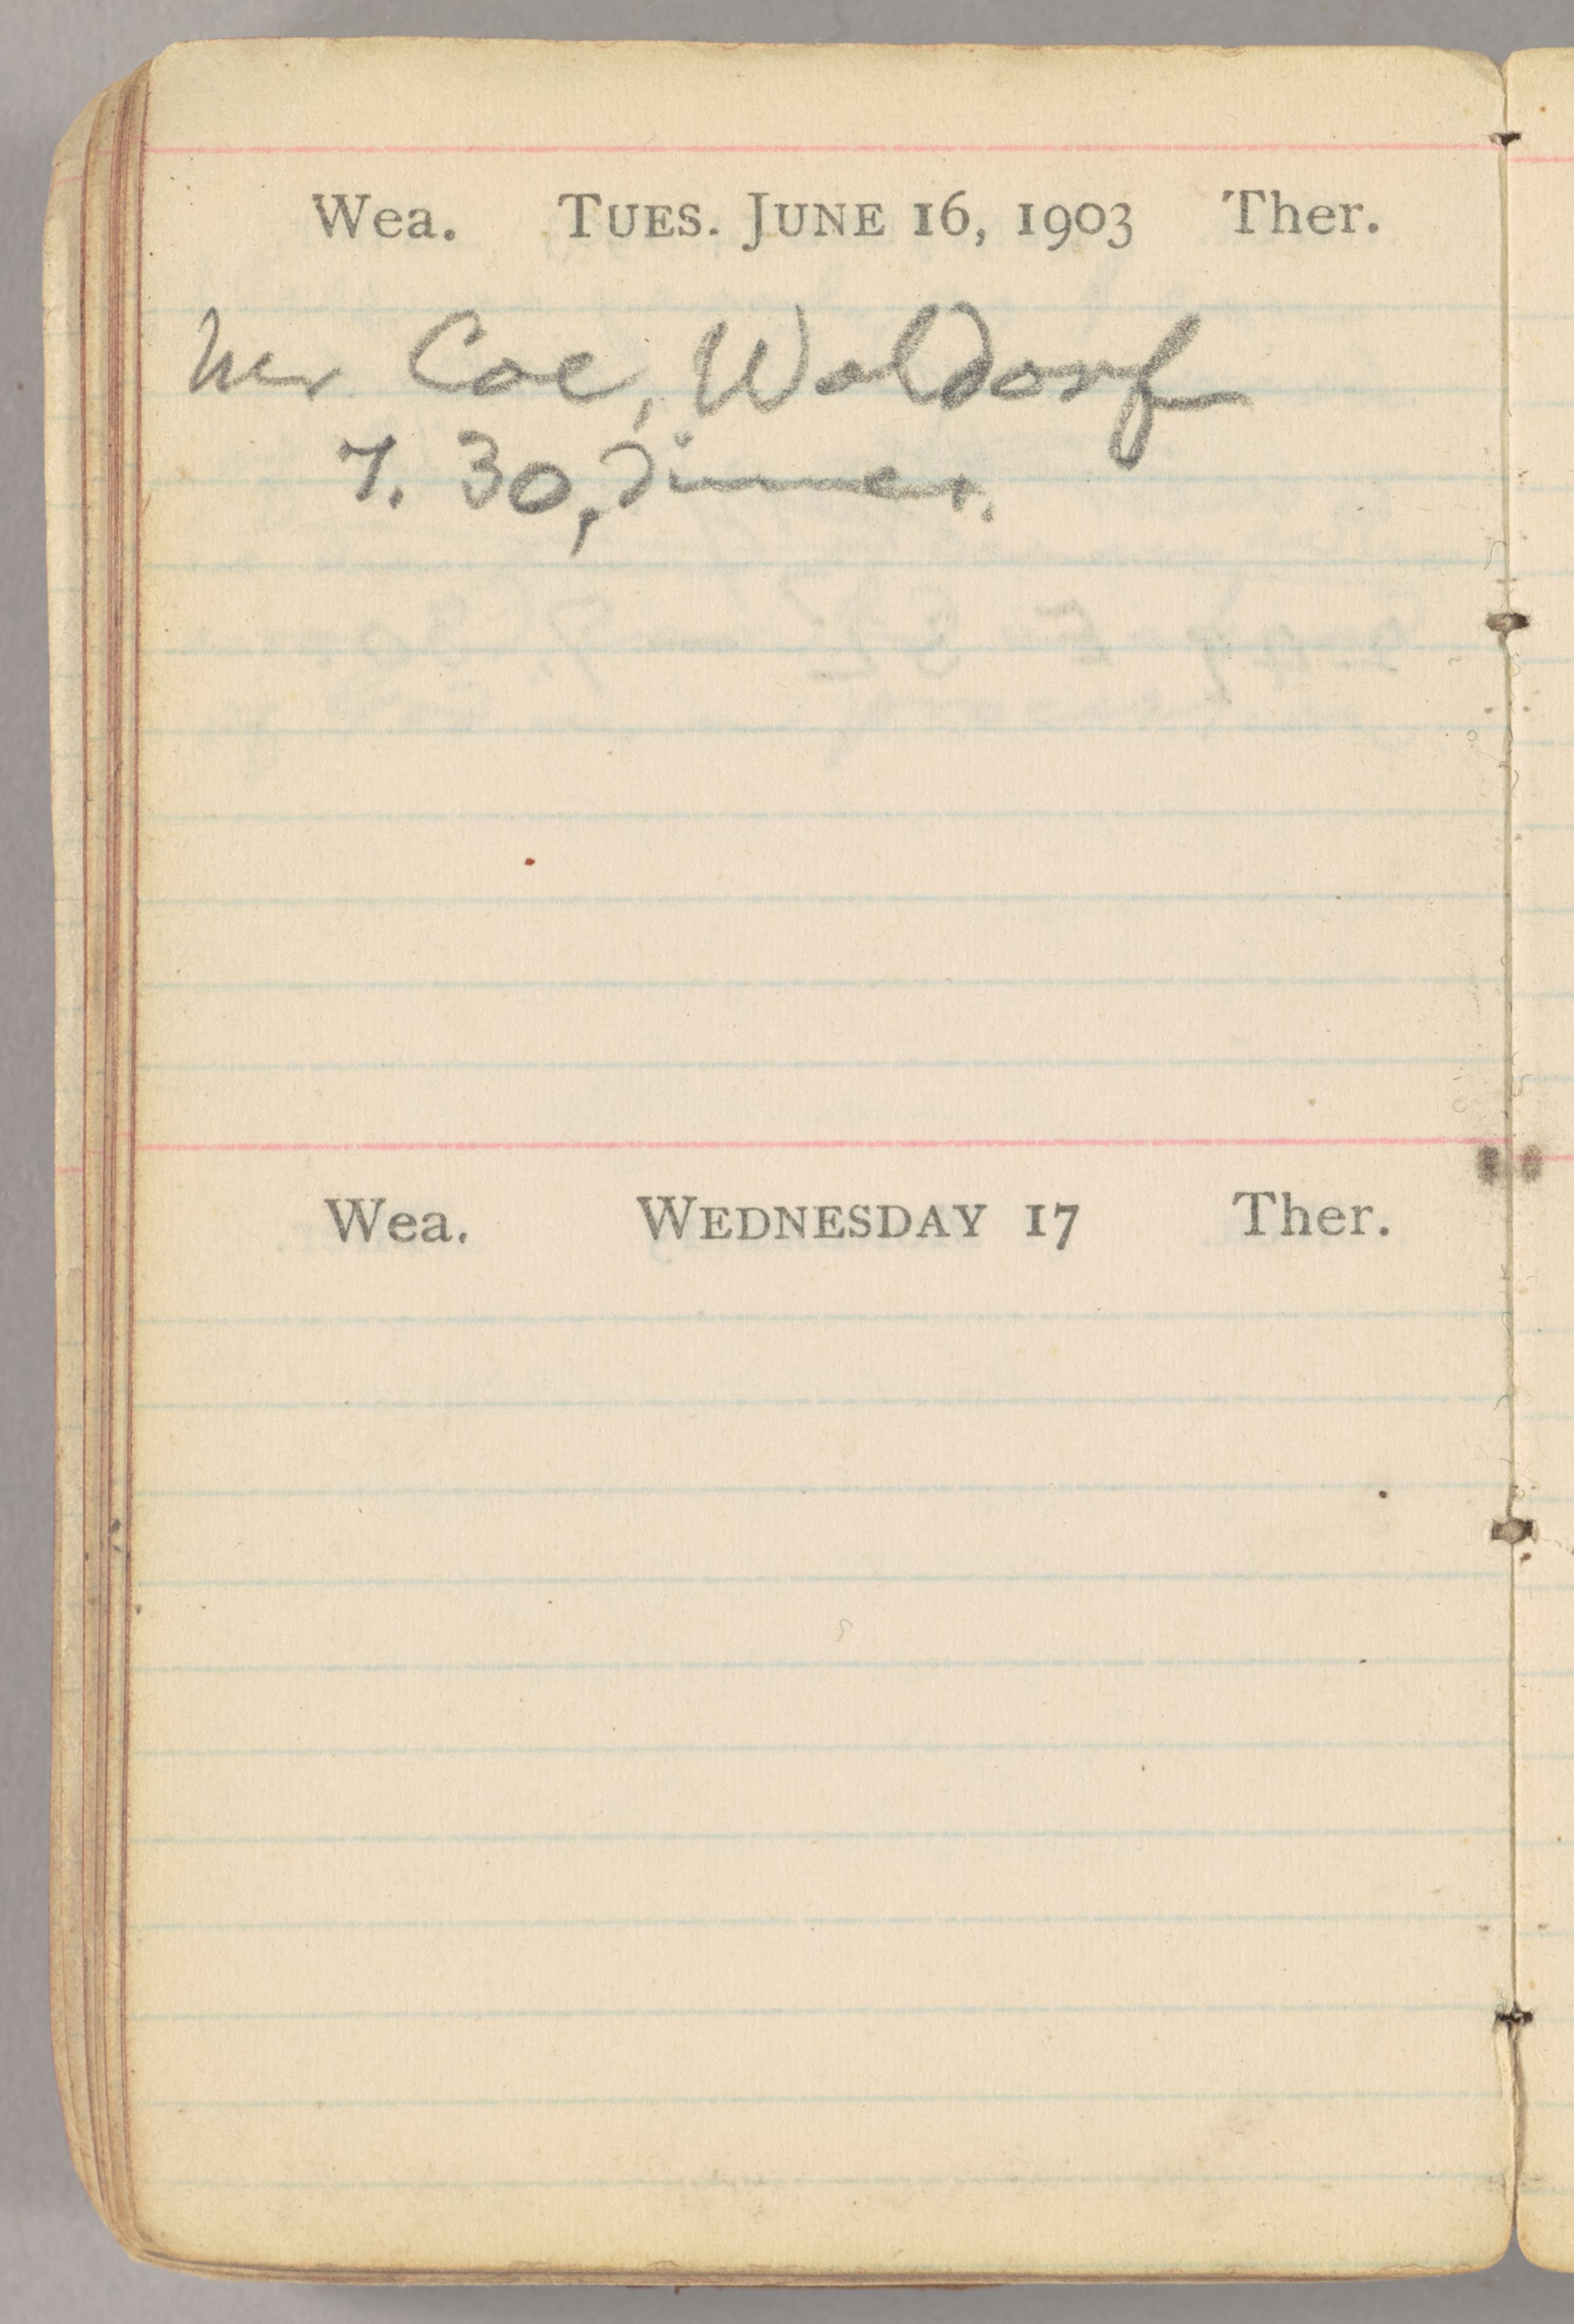 Wea. TUES. JUNE 16, 1903 Ther.
Coe, Waldorf
7.30, Dinner.
Wea. WEDNESDAY 17 Ther.